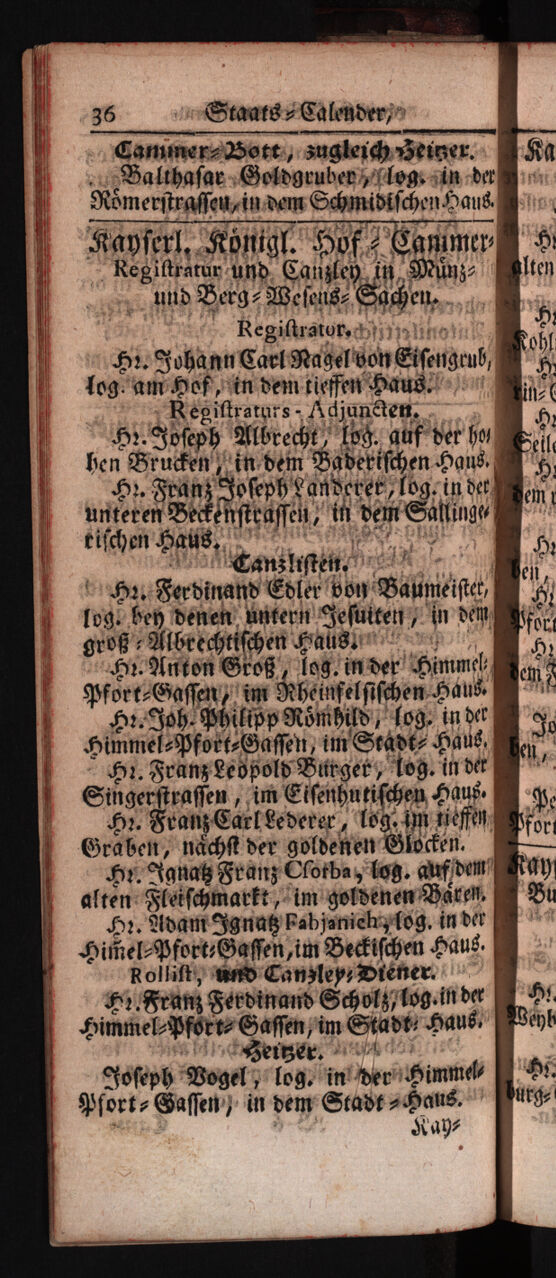 36 Staats-Calender,
Cammer-Bott, zugleich Heitzer.
Balthasar Goldgruber, log. in der
Römerstrassen, in dem Schmidischen Haus.
Kayserl. Königl. Hof-Cammer-
Registratur und Canzley in Müntz-
und Berg-Wesens-Sachen.
Registrator.
Hr. Johann Carl Nagel von Eisengrub,
log. am Hof, in dem tieffen Haus.
Registraturs-Adjuncten.
Hr. Joseph Albrecht, log. auf der ho-
hen Brucken, in dem Baderischen Haus.
Hr. Franz Joseph Landerer, log. in der
unteren Beckenstrassen, in dem Sallinge-
rischen Haus.
Canzlisten.
Hr. Ferdinand Edler von Baumeister,
log. bey denen untern Jesuiten, in dem
groß-Albrechtischen Haus.
Hr. Anton Groß, log. in der Himmel-
Pfort-Gassen, im Rheinfelsischen Haus.
Hr. Joh. Philipp Römhild, log. in der
Himmel-Pfort-Gassen, im Stadt-Haus.
Hr. Franz Leopold Burger, log. in der
Singerstrassen, im Eisenhutischen Haus.
Hr. Franz Carl Lederer, log. im tieffen
Graben, nächst der goldenen Glocken.
Hr. Ignatz Franz Csorba, log. auf dem
alten Fleischmarkt, im goldenen Bären.
Hr. Adam Ignatz Fabjanich, log. in der
Him̃el-Pfort-Gassen, im Beckischen Haus.
Rollist, und Canzley-Diener.
Hr. Franz Ferdinand Scholz, log. in der
Himmel-Pfort-Gassen, im Stadt-Haus.
Heitzer.
Joseph Vogel, log. in der Himmel-
Pfort-Gassen, in dem Stadt-Haus.
Kay-